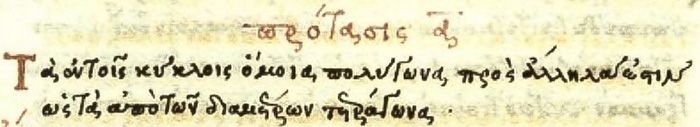 πρότασις α
Τὰ ἐν τοῖς κύκλοις ὅμοια πολύγωνα πρὸς ἄλληλα ἐστιν
ὡς τὰ ἀπὸ τῶν διαμέτρων τετράγωνα ·